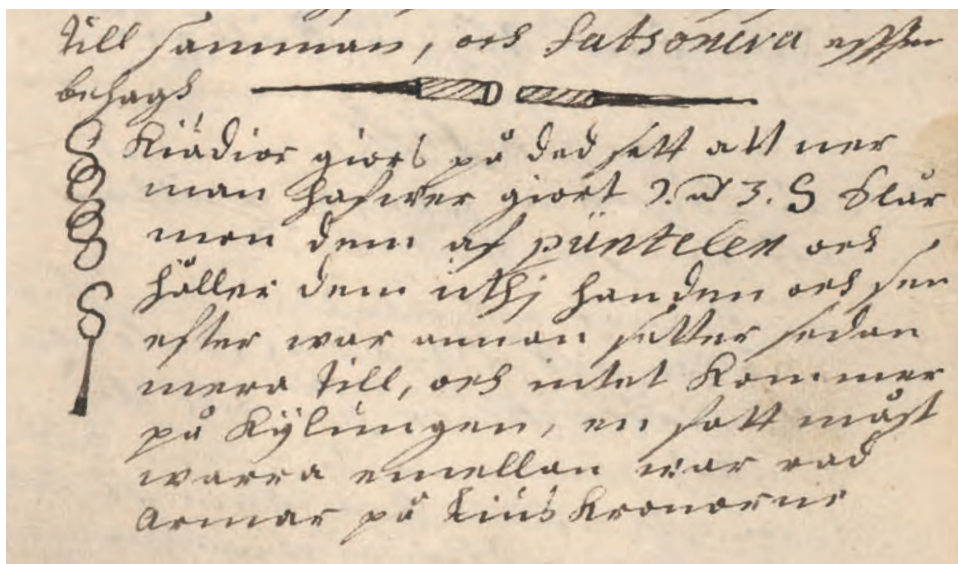 till samman, och fatsonera efter
behagh
Kiädior giörs på ded sett att ner
man hafwer giort 2. a 3. S slår
man dem af püntelen och
håller dem uthj handen och sen
efter war annan setter sedan
mera till, och intet Kommer
på Kÿlungen, en satt måst
warra emellan war rad
Armar på Lius Kronorne